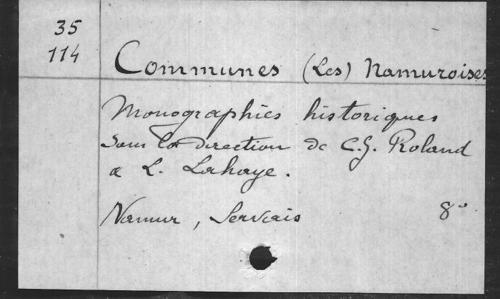 35
114
Communes (Les) Namuroises
Monographies historiques
sous la direction de C.G. Roland
& L. Lahaye.
Namur, Servais 8°